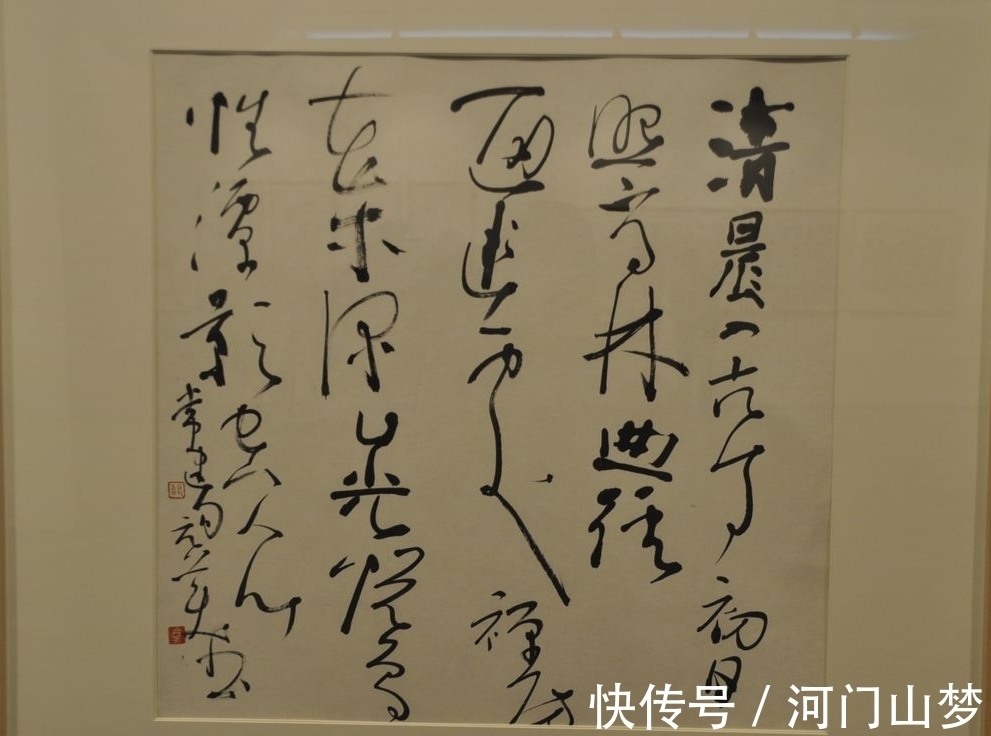 清晨入古寺初日
照高林曲徑
通幽處禪房
花木深山光悅鳥
性潭影空人心
常建句
快传号 / 河门山梦